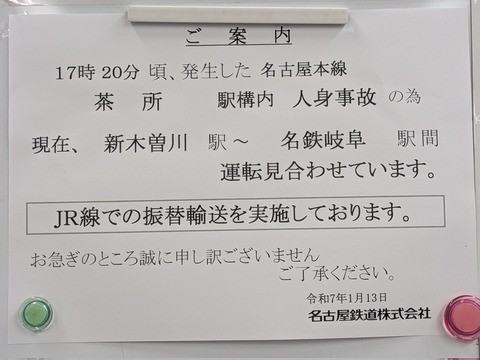 ご案内
17時20分頃、発生した 名古屋本線
茶所 駅構内 人身事故 の為
現在、 新木曽川 駅～ 名鉄岐阜 駅間
運転見合わせています。
JR線での振替輸送を実施しております。
お急ぎのところ誠に申し訳ございません
ご了承ください。
令和7年1月13日
名古屋鉄道株式会社